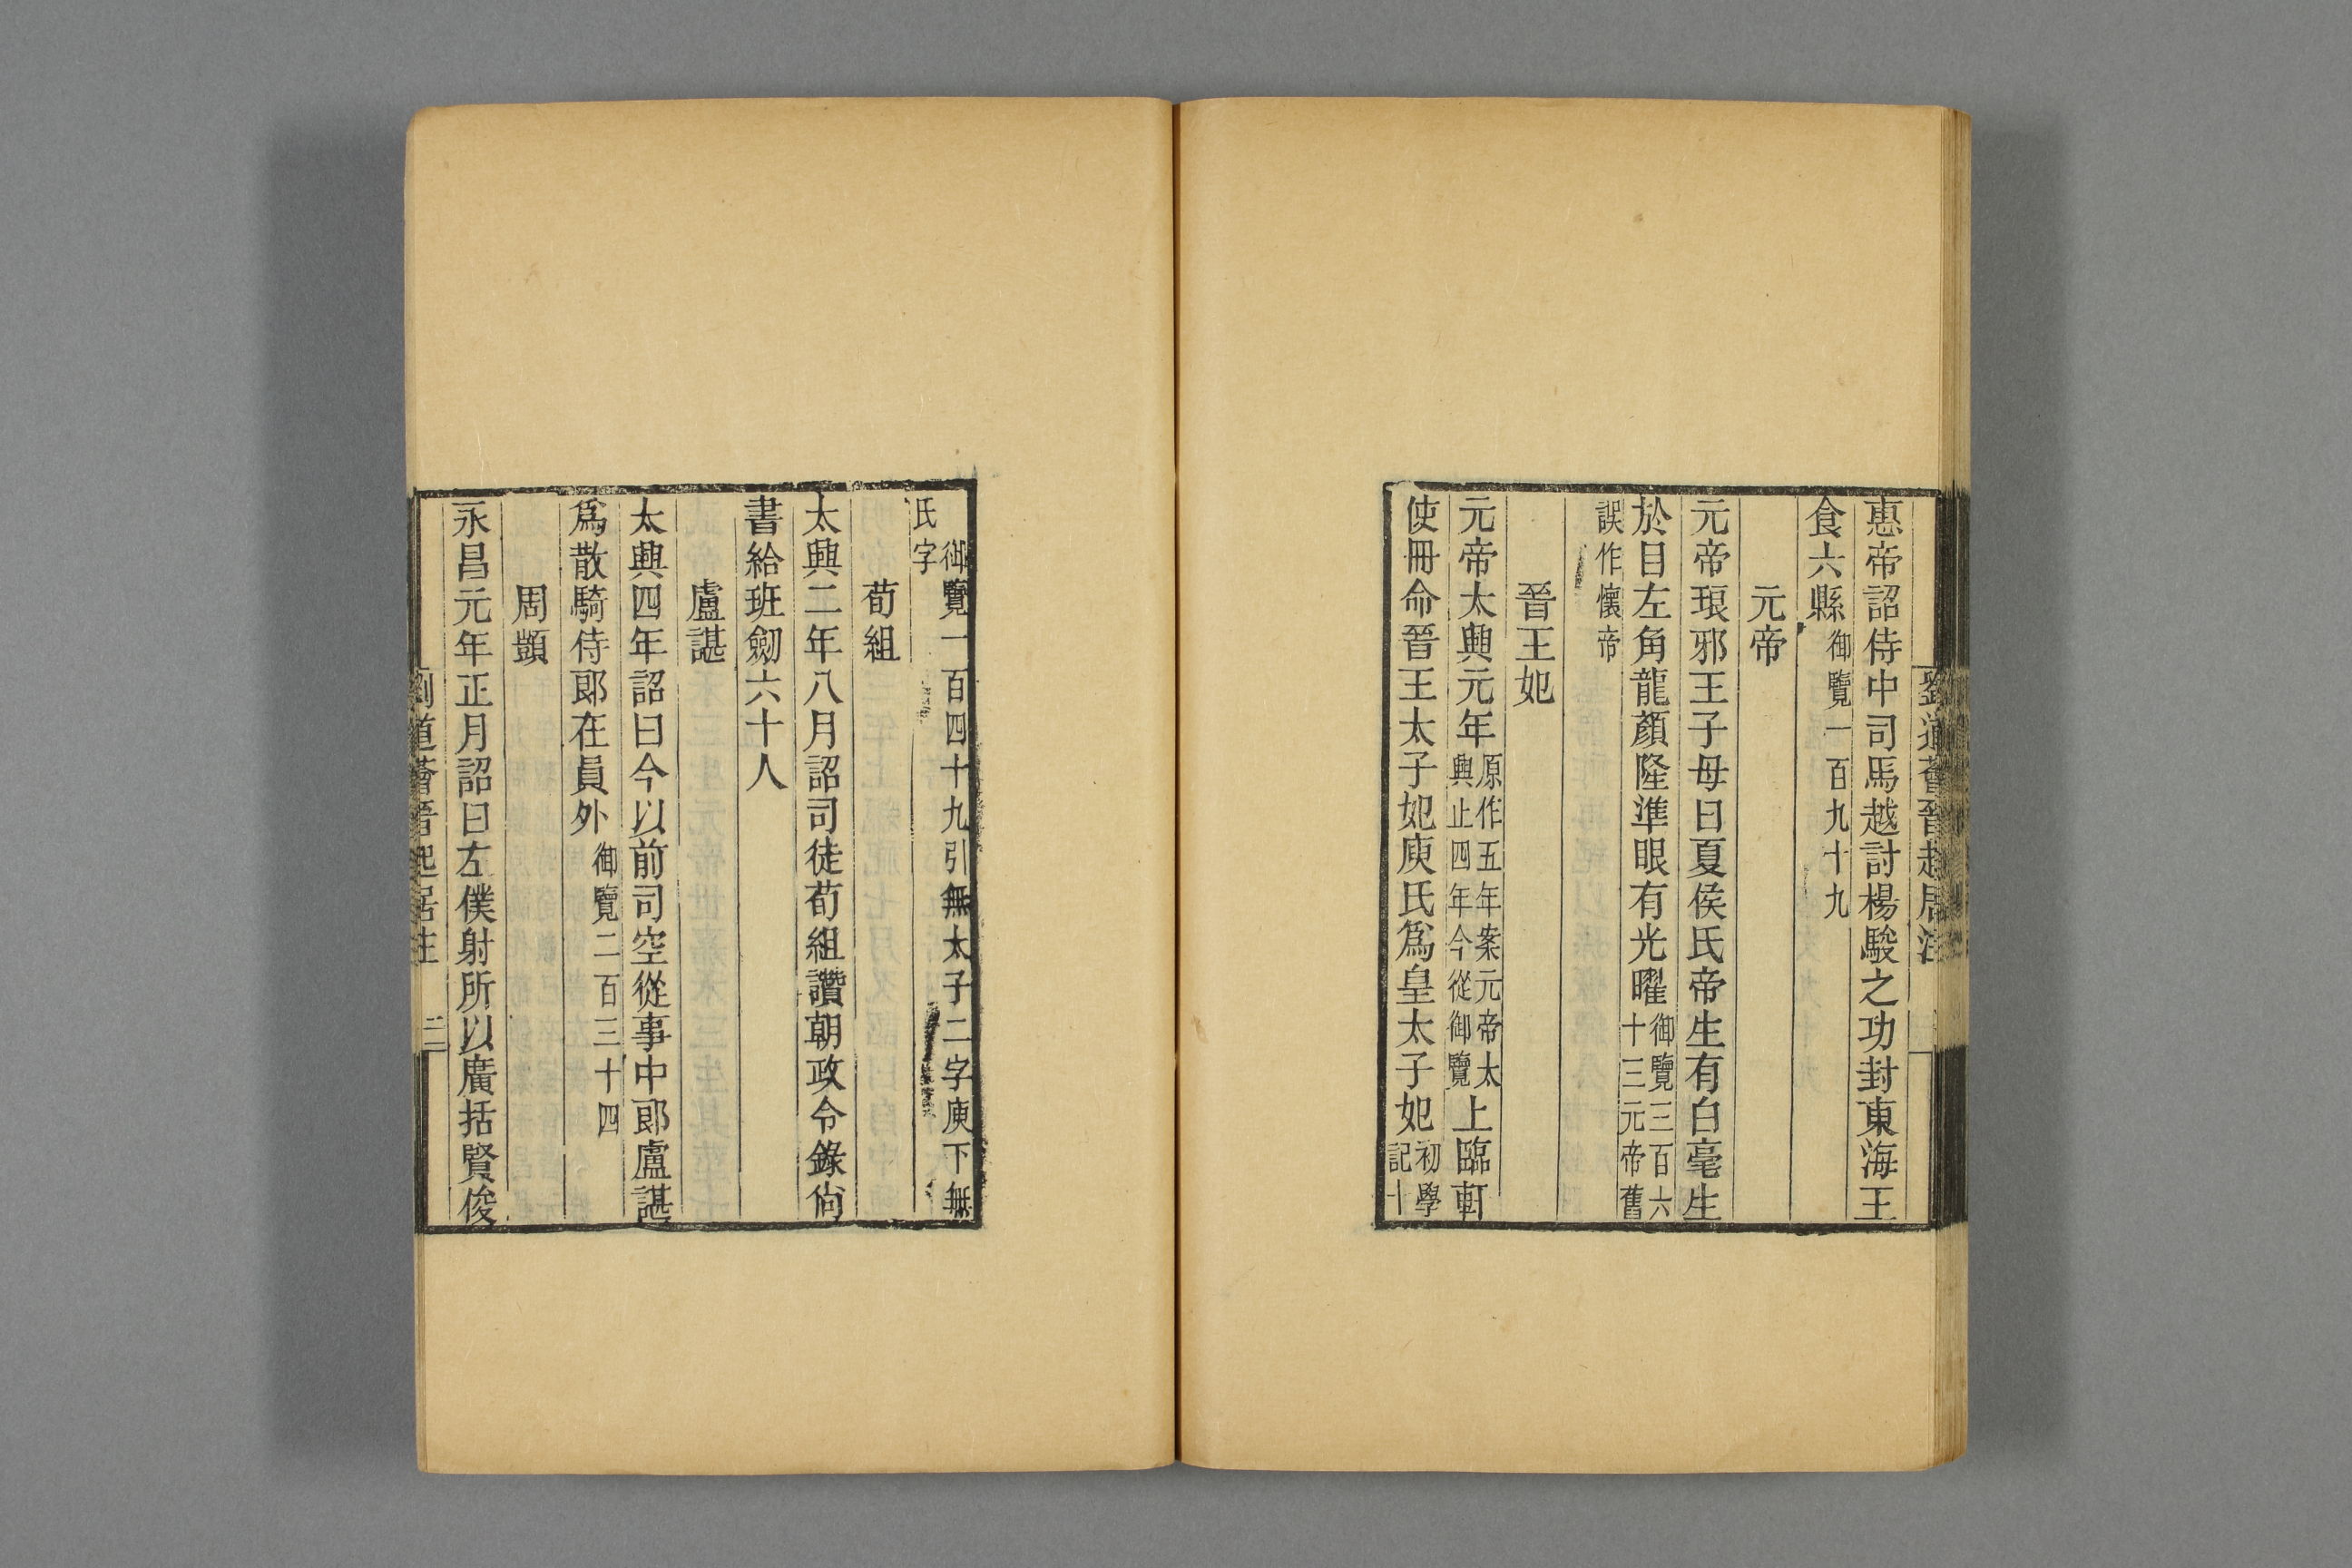 劉道薈晉起居注
惠帝詔侍中司馬越討楊駿之功封東海王
食六縣御覽一百九十九
元帝
元帝琅邪王子母曰夏侯氏帝生有白毫生
於目左角龍顏隆準眼有光曜御覽三百六
十三元帝舊
誤作懷帝
晉王妃
元帝太興元年原作五年案元帝太
興止四年今從御覽上臨軒
使冊命晉王太子妃庾氏爲皇太子妃初學
記十
御覽一百四十九引無太子二字庾下無
氏字
荀組
太興二年八月詔司徒荀組讚朝政令錄尙
書給班劒六十人
盧諶
太興四年詔曰今以前司空從事中郎盧諶
爲散騎侍郎在員外御覽二百三十四
周顗
永昌元年正月詔曰左僕射所以廣括賢俊
劉道薈晉起居注 三